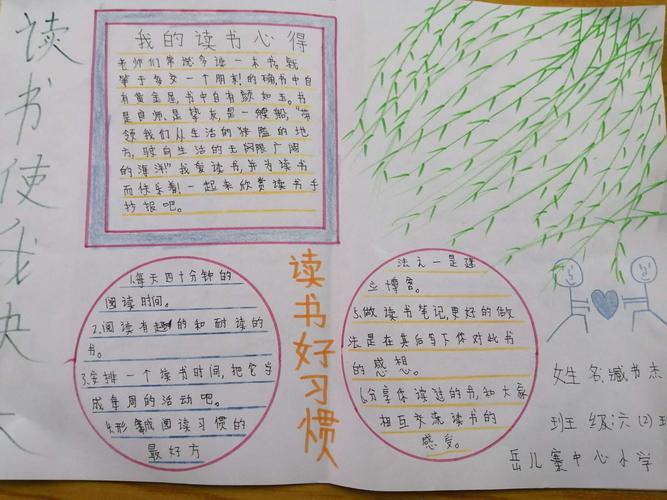 读书使我快
我的读书心得
老师们常说多读一本书,就
等于多交一个朋友!的确,书中自
有黄金屋,书中自有颜如玉。书
是良师,是挚友,是一艘船,“带
领我们从生活的狭隘的地
方,驶向生活的无网限广阔
的海洋!”我爱读书,并为读书
而快乐着!一起来欣赏读书手
抄报吧。
读书好习惯
1.每天四十分钟的
阅读时间。
2.阅读有趣的和耐读的
书。
3.安排一个读书时间,把它当
成每周的活动吧。
4.形成阅读习惯的
最好方
法之一是建
立博客。
5.做读书笔记,更好的做
法是在其后写下你对此书
的感想。
6.分享你读过的书,和大家
相互交流读书的
感受。
姓名:臧书杰
班级:六(2)班
岳儿寨中心小学